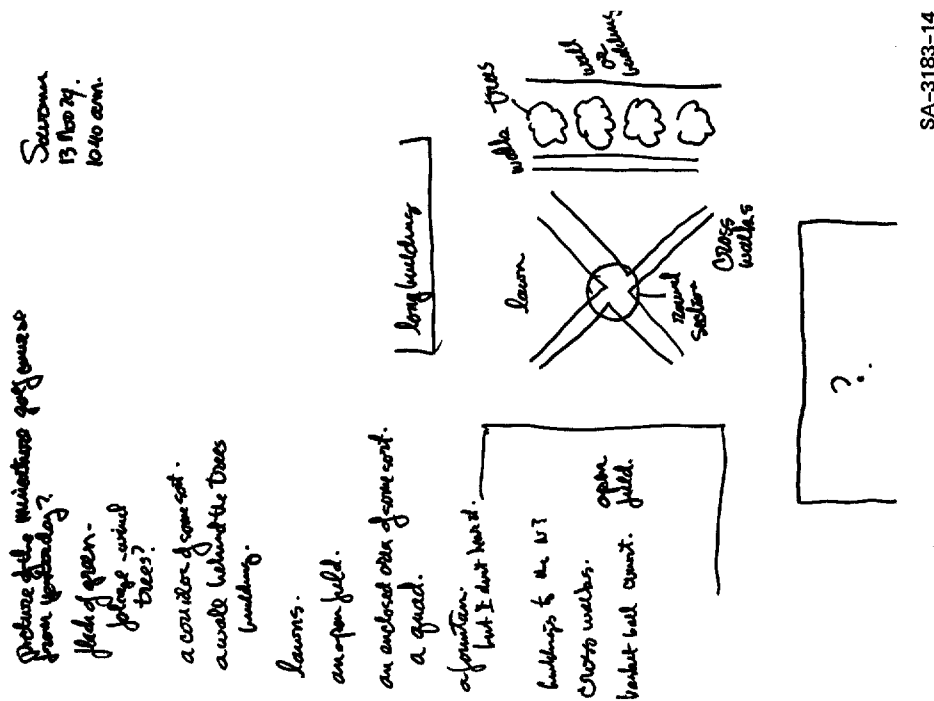 13 Nov 79.
1040 am.
picture of the miniature golf course
from yesterday?
flash of green -
foliage - wind
trees?
a corridor of some sort.
a wall behind the trees
building.
lawns.
an open field.
an enclosed area of some sort.
a quad.
a fountain.
but I dont hear it.
buildings to the
cross walks.
basket ball court.
open
field.
long building
lawn
round
section
Cross
walks
walk
trees
wall
or
building
?.
SA-3183-14